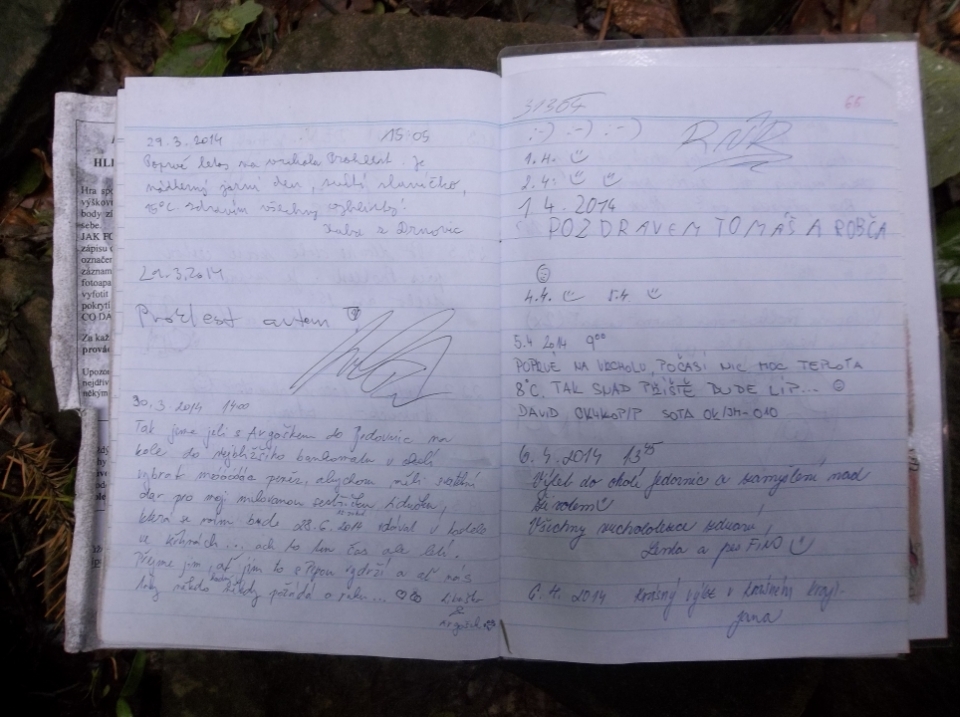 HLE
Hra spo
výškov
body zí
sebe.
JAK FO
zápisu
označer
záznam
fotoapa
vyfotit
pokrytí
CO DA
Za kaž
prováo
Upozor
nejdřív
někým
29.3.2014 15:05
Poprvé letos na vrcholu Proklest. Je
nádherný jarní den, svítí sluníčko,
15°C. Zdravím všechny
z Drnovic
29.3.2014
Proklest autem
30.3.2014 1400
Tak jsme jeli s Argoškem do Jedovnic na
kole do nejbližšího bankomatu v okolí
vybrat peněz, abychom měli svatební
dar pro moji milovanou sestřičku
která se nám bude 28.6.2014 vdávat v kostele
ve Křtinách... ach to ten čas ale letí.
Přejme jim, ať jim to spolu vydrží a ať nás
taky někdo někdy požádá o ruku...
Argošek
31364
66
:-) :-) :-)
1.4.
2.4.
1 4. 2014
POZDRAVEM TOMÁŠ A ROBČA
4.4. 5.4
5.4 2014 9⁰⁰
POPRVÉ NA VRCHOLU, POČASÍ NIC MOC TEPLOTA
8°C. TAK SNAD PŘÍŠTĚ BUDE LÍP...
DAVID OK4KOP/P SOTA OK/JM-010
6.4.2014 13⁴⁵
Výlet do okolí Jedovnic a zamyšlení nad
životem
Všechny vrchololezce zdraví,
Lenka a pes FINO
6.4.2014 krásný výlet v krásném kraji-
Jana